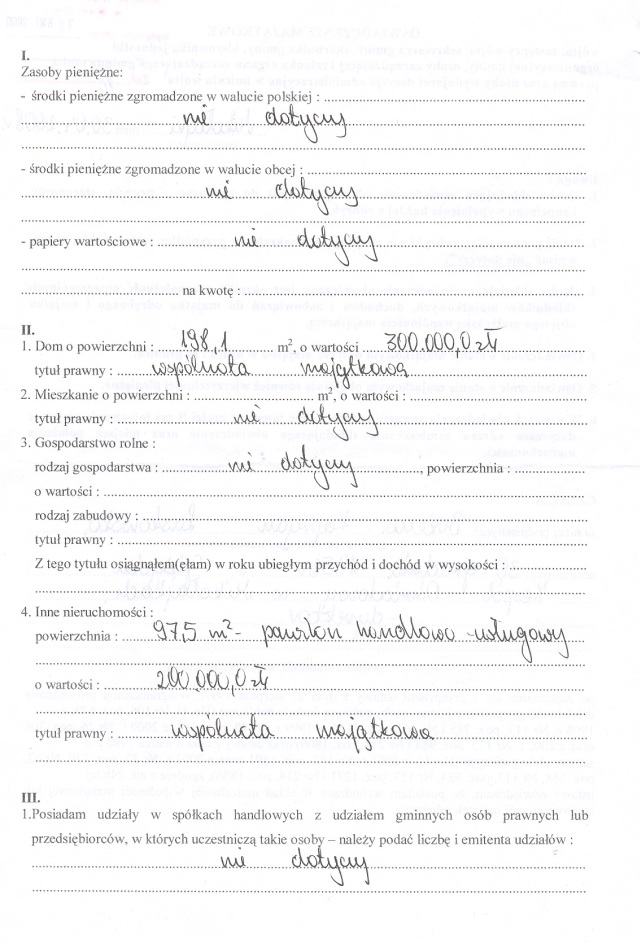 I.
Zasoby pieniężne:
- środki pieniężne zgromadzone w walucie polskiej :
nie dotyczy
- środki pieniężne zgromadzone w walucie obcej :
nie dotyczy
- papiery wartościowe : nie dotyczy
na kwotę :
II.
1. Dom o powierzchni : 198,1 m², o wartości 300.000,0 zł
tytuł prawny : wspólnota majątkowa
2. Mieszkanie o powierzchni : m², o wartości :
tytuł prawny : nie dotyczy
3. Gospodarstwo rolne :
rodzaj gospodarstwa : nie dotyczy, powierzchnia :
o wartości :
rodzaj zabudowy :
tytuł prawny :
Z tego tytułu osiągnąłem(ęłam) w roku ubiegłym przychód i dochód w wysokości :
4. Inne nieruchomości :
powierzchnia : 97,5 m² - pawilon handlowo - usługowy
o wartości : 200.000,0 zł
tytuł prawny : wspólnota majątkowa
III.
1.Posiadam udziały w spółkach handlowych z udziałem gminnych osób prawnych lub
przedsiębiorców, w których uczestniczą takie osoby – należy podać liczbę i emitenta udziałów :
nie dotyczy